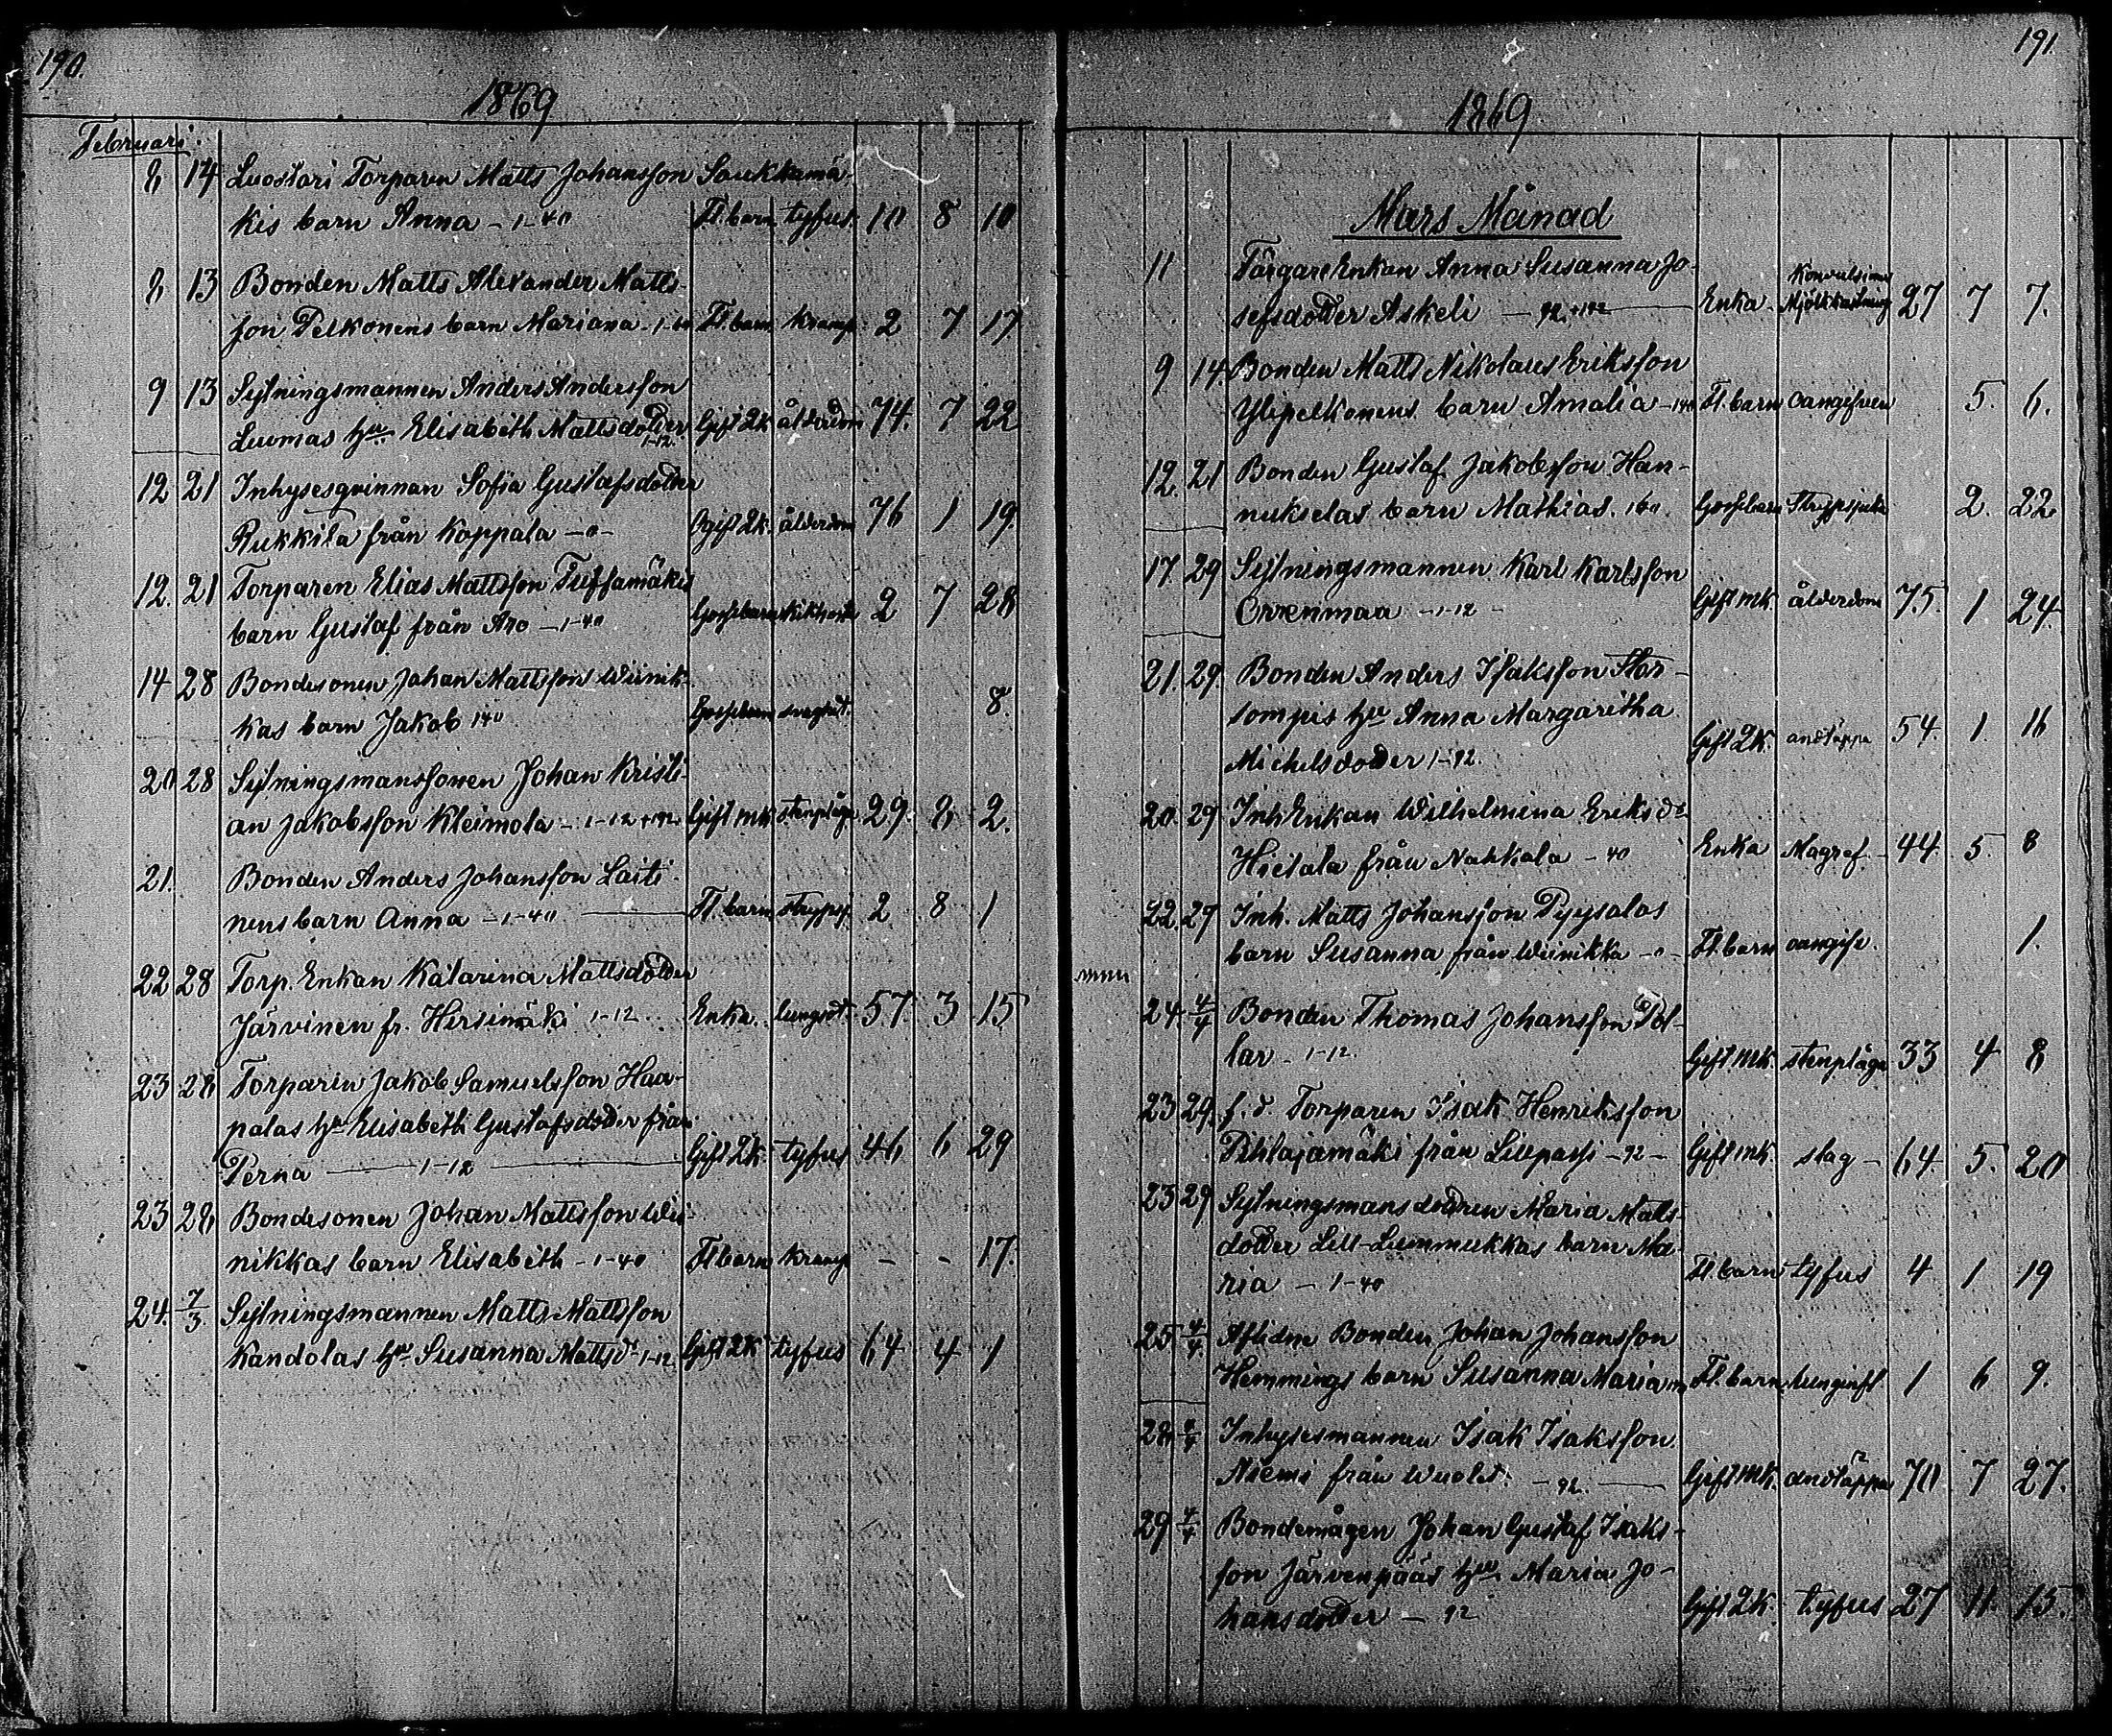 190.
1869
Februari.
8 14 Luostari Torparen Matts Johansson Saukkamä-
kis barn Anna - 1-40 Fl. barn tyfus. 10 8 10
8 13 Bonden Matts Alexander Matts-
son Pelkonens barn Mariana - 1-40 Fl. barn kramp. 2 7 17.
9 13 Sytningsmannen Anders Andersson
Luomas hu Elisabeth Mattsdotter Gift Qk ålderdom 74. 7 22
1-12.
12 21 Inhysesqvinnan Sofia Gustafsdotter
Rukkila från Koppala -0- Ogift Qk. ålderdom 76 1 19.
12. 21 Torparen Elias Mattsson Tuissamäkis
barn Gustaf från Aro - 1-40 Gossebarn kikhosta 2 7 28
14 28 Bondesonen Johan Mattsson Wiinik-
kas barn Jakob 140 Gossebarn svaghet. 8.
20 28 Sytningsmanssonen Johan Kristi-
an Jakobsson Kleimola - 1-12 + 192. Gift mk stenplåga 29. 8 2.
21. Bonden Anders Johansson Laiti-
nens barn Anna - 1-40 Fl. barn strypsj. 2 8 1
22 28 Torp. Enkan Katarina Mattsdotter
Järvinen fr. Hirsimäki 1-12. Enka. lungsot. 57. 3 15
23 28 Torparen Jakob Samuelsson Haa-
palas hu Elisabeth Gustafsdotter från
Perna 1-12 Gift Qk. tyfus 46 6 29
23 28 Bondesonen Johan Mattsson Wii-
nikkas barn Elisabeth - 1-40 Fl barn kramp - - 17.
24. 7/3 Sytningsmannen Matts Mattsson
Kandolas hu. Susanna Mattsdr 1-12 Gift Qk tyfus 64 4 1
191.
1869
Mars Månad
11 Färgare Enkan Anna Susanna Jo-
sefsdotter Askeli - 92. + 192 Enka. Konvulsioner
Mjölkkastning 27 7 7.
9 14 Bonden Matts Nikolaus Eriksson
Ylipelkonens barn Amalia - 140 Fl. barn oangifven 5. 6.
12. 21 Bonden Gustaf Jakobsson Han-
nukselas barn Mathias. 140. Gossebarn Strypsjuka 2. 22
17. 29 Sytningsmannen Karl Karlsson
Orrenmaa - 1-12 - Gift mk. ålderdom 75. 1 24.
21. 29. Bonden Anders Isaksson Stor-
sompis hu Anna Margaritha
Michelsdotter 1-92. Gift Qk. andtäppa 54. 1. 16
20. 29 Inh Enkan Wilhelmina Eriksdr
Hietala från Nahkala - 40 Enka Magref. - 44. 5. 8
22. 29 Inh. Matts Johansson Pyysalos
barn Susanna från Wiinikka - 0 - Fl. barn oangifv. 1.
24. 4/4 Bonden Thomas Johansson Tol-
lar - 1-12. Gift mk. stenplåga 33 4 8
23 29. f. d. Torparen Isak Henriksson
Pihlajamäki från Lillpassi - 92 - Gift mk. slag - 64. 5. 20
23 29. Sytningsmans dottren Maria Matts-
dotter Lill-Lummukkas barn Ma-
ria - 1-40 Fl. barn tyfus 4 1 19
25 4/4. Aflidne Bonden Johan Johansson
Hemmings barn Susanna Maria Fl. barn. lunginfl 1 6 9.
28 4/4 Inhysesmannen Isak Isaksson
Niemi från Wuolet. - 92. Gift mk. andtäppa 70 7 27.
29 4/4 Bondemågen Johan Gustaf Isaks-
son Järvenpääs hu Maria Jo-
hansdotter - 92 Gift Qk. tyfus 27 11. 15.